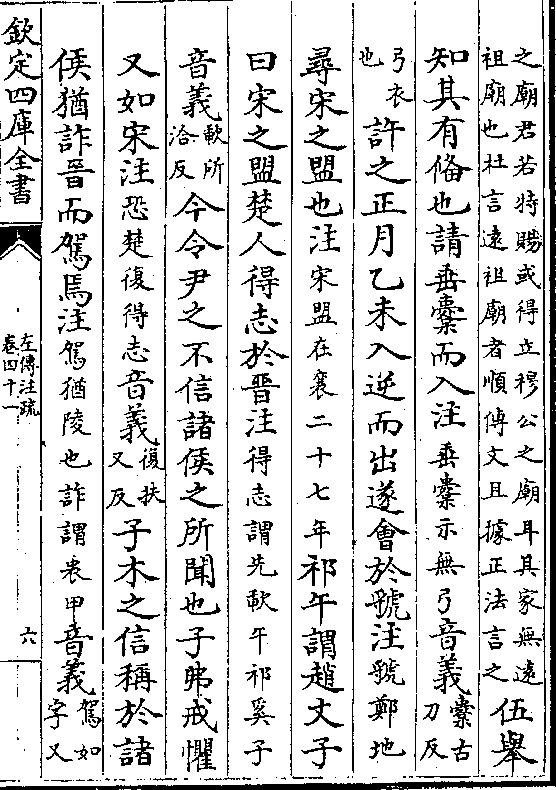 之廟君若特賜或得立穆公之廟耳其家無遠
祖廟也杜言遠祖廟者順傳文且據正法言之
伍舉
知其有備也請垂櫜而入注垂櫜示無弓音義櫜古
刀反
弓衣
也
許之正月乙未入逆而出遂會於虢注虢鄭地
尋宋之盟也注宋盟在襄二十七年祁午謂趙文子
曰宋之盟楚人得志於晉注得志謂先歃午祁奚子
音義歃所
洽反
今令尹之不信諸侯之所聞也子弗戒懼
又如宋注恐楚復得志音義復扶
又反
子木之信稱於諸
侯猶詐晉而駕焉注駕猶陵也詐謂衷甲音義駕如
字又
欽定四庫全書
左傳注疏
卷四十一
六